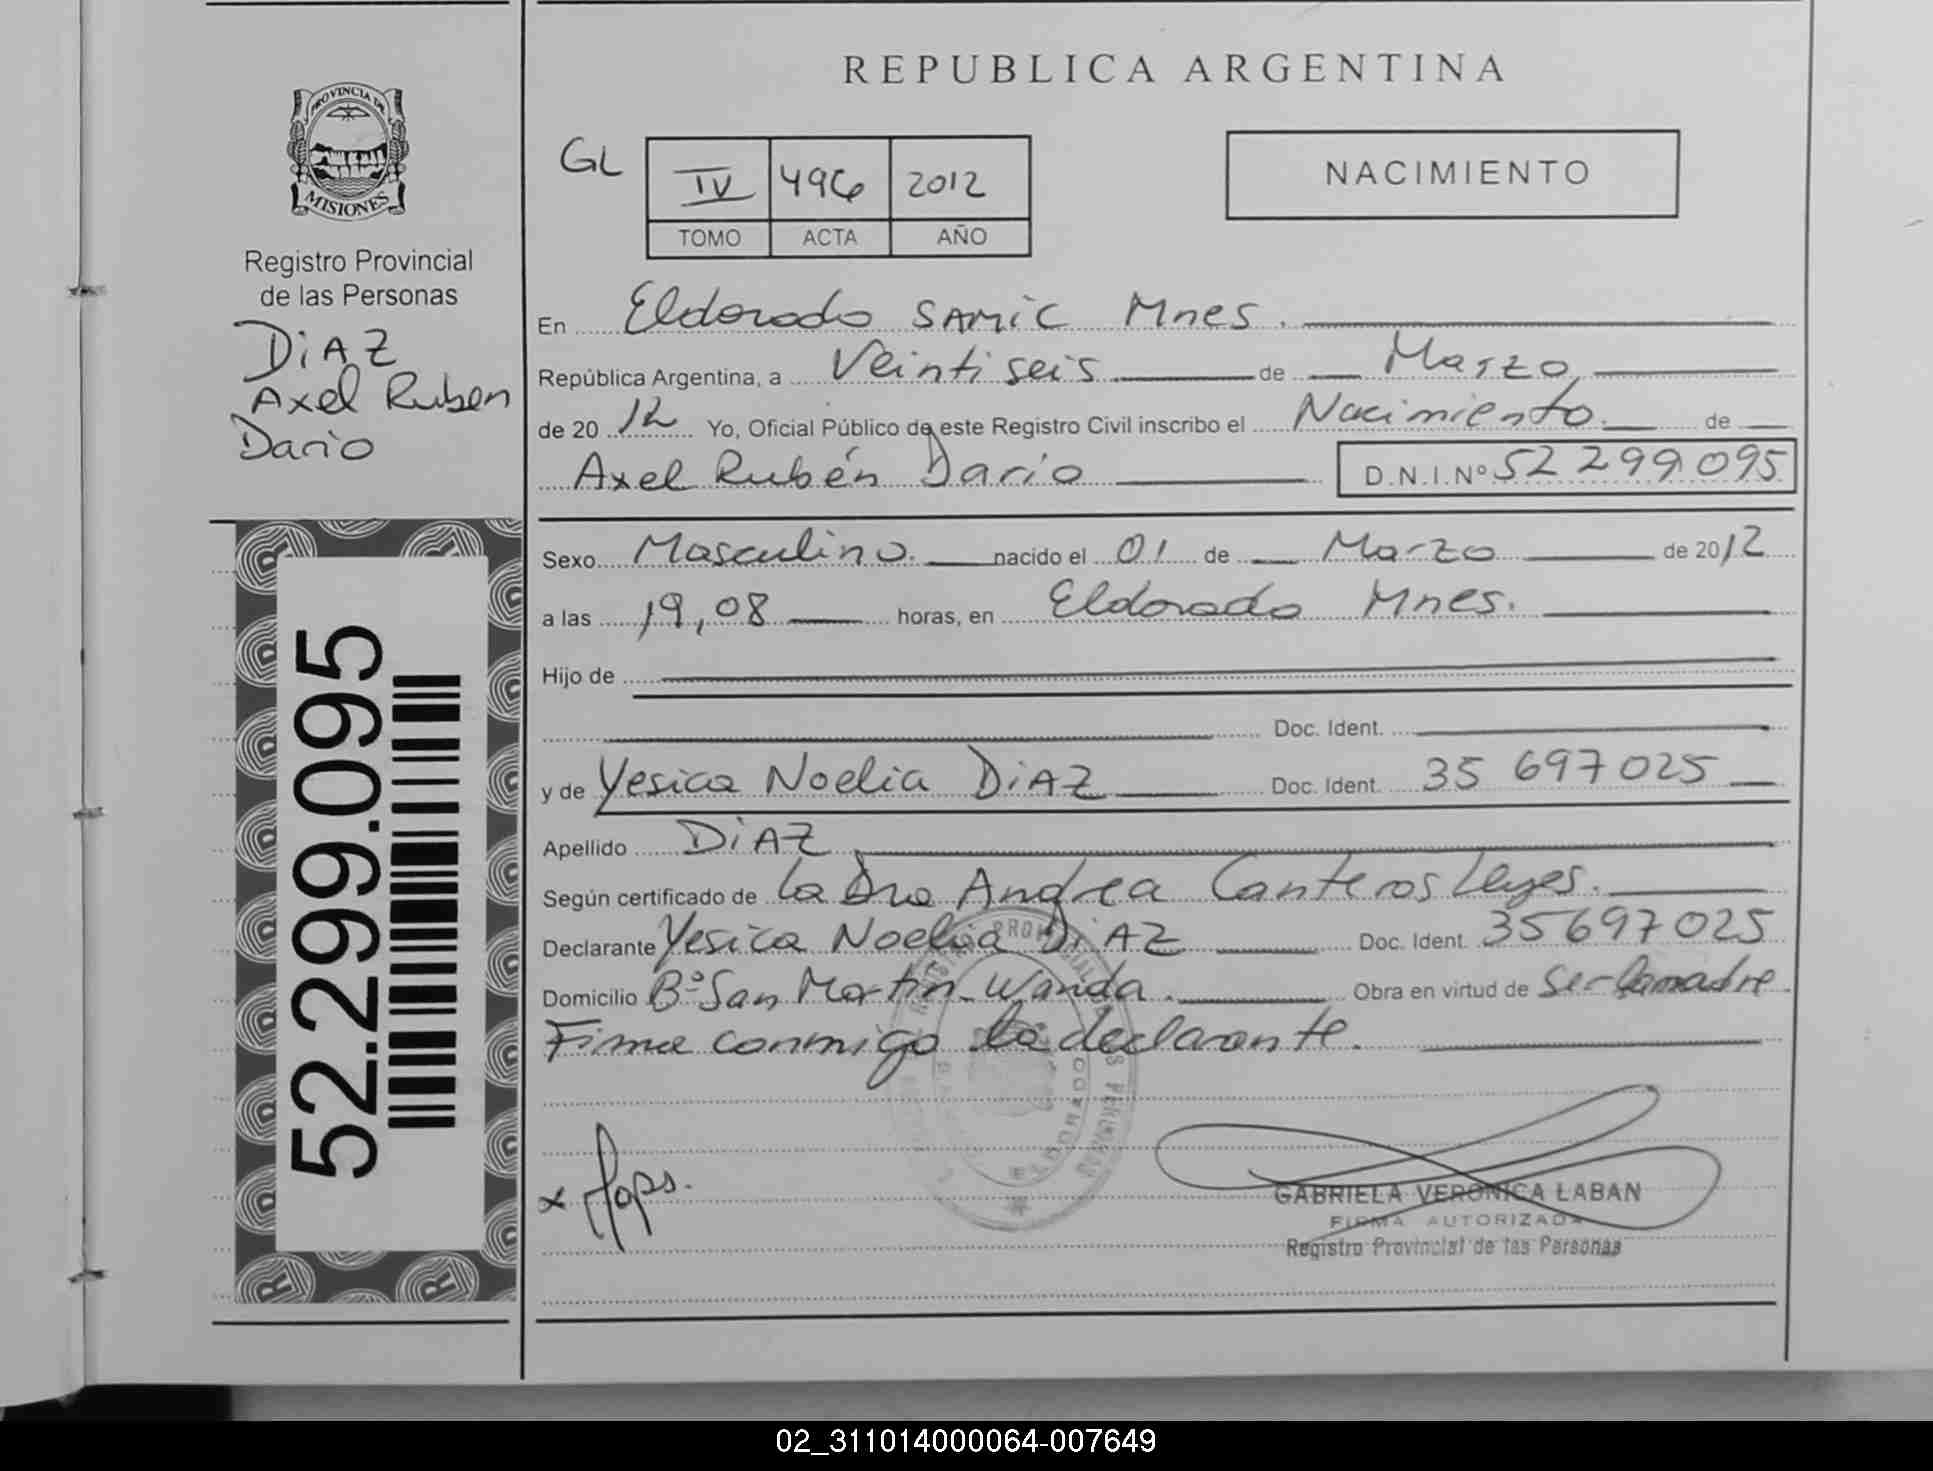 REPUBLICA ARGENTINA
PROVINCIA DE
MISIONES
Registro Provincial
de las Personas
DiAZ
Axel Ruben
Dario
52.299.095
GL
IV 496 2012
TOMO ACTA AÑO
NACIMIENTO
En Eldorado SAMiC Mnes.
República Argentina, a Veintiseis de Marzo
de 20 12 Yo, Oficial Público de este Registro Civil inscribo el Nacimiento de
Axel Rubén Dario D.N.I.Nº 52 299 095
Sexo Masculino. nacido el 01 de Marzo de 2012
a las 19,08 horas, en Eldorado Mnes.
Hijo de
Doc. Ident.
y de Yesica Noelia DiAZ Doc. Ident. 35 697 025
Apellido DiAZ
Según certificado de la Dra Andrea Canteros Leyes.
Declarante Yesica Noelia DiAZ Doc. Ident. 35697025
Domicilio Bº San Martín. Wanda. Obra en virtud de Ser la madre
Firma conmigo la declarante.
x
GABRIELA VERONICA LABAN
FIRMA AUTORIZADA
Registro Provincial de las Personas
02_311014000064-007649